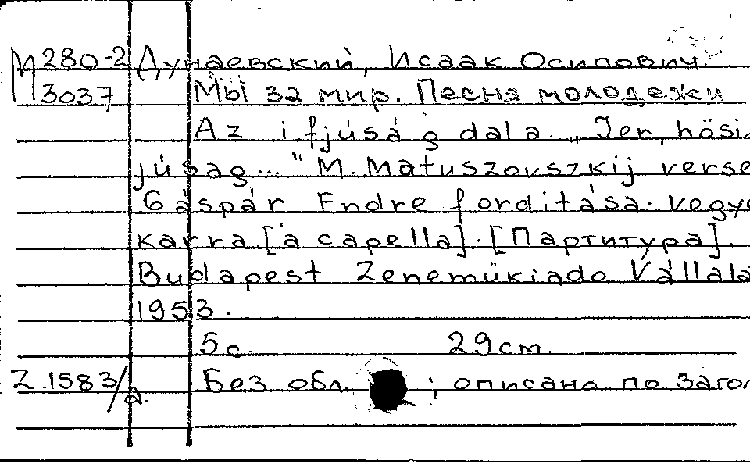 М 280-2 Дунаевский, Исаак Осипович.
3037 Мы за мир. Песня молодежи
Az ifjúság dala. "Jer, hősi
júság..." M. Matuszovszkij verse
Gáspár Endre fordítása. vegye
karra [a capella]. [Партитура].
Budapest Zeneműkiado Vállala
1953.
5с 29cm.
Z 1583/a. Без обл. ; описано по загол